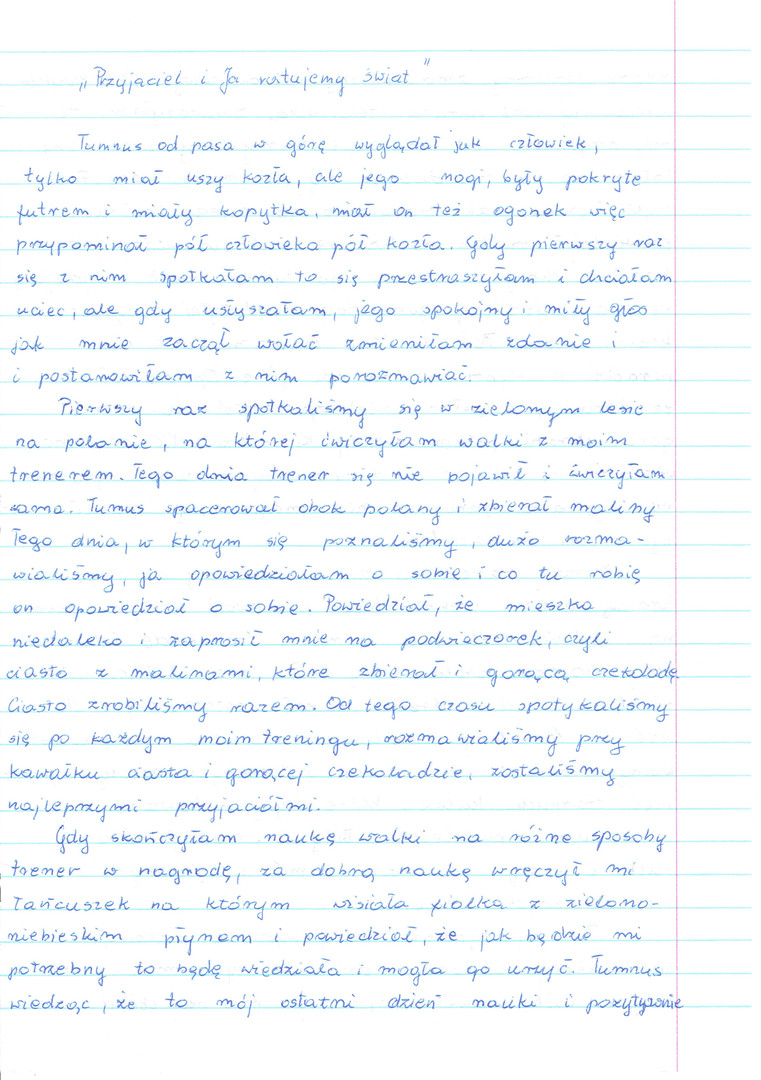 „Przyjaciel i Ja ratujemy świat"
Tumnus od pasa w górę wyglądał jak człowiek,
tylko miał uszy kozła, ale jego nogi, były pokryte
futrem i miały kopytka, miał on też ogonek więc
przypominał pół człowieka pół kozła. Gdy pierwszy raz
się z nim spotkałam to się przestraszyłam i chciałam
uciec, ale gdy usłyszałam, jego spokojny i miły głos
jak mnie zaczął wołać zmieniłam zdanie i
i postanowiłam z nim porozmawiać.
Pierwszy raz spotkaliśmy się w zielonym lesie
na polanie, na której ćwiczyłam walki z moim
trenerem. Tego dnia trener się nie pojawił i ćwiczyłam
sama. Tumus spacerował obok polany i zbierał maliny
Tego dnia, w którym się poznaliśmy, dużo rozma-
wialiśmy, ja opowiedziałam o sobie i co tu robię
on opowiedział o sobie. Powiedział, że mieszka
niedaleko i zaprosił mnie na podwieczorek, czyli
ciasto z malinami, które zbierał i gorącą czekoladę.
Ciasto zrobiliśmy razem. Od tego czasu spotykaliśmy
się po każdym moim treningu, rozmawialiśmy przy
kawałku ciasta i gorącej czekoladzie, zostaliśmy
najleprzymi przyjaciółmi.
Gdy skończyłam naukę walki na różne sposoby
trener w nagrodę, za dobrą naukę wręczył mi
łańcuszek na którym wisiała fiolka z zielono-
niebieskim płynem i powiedział, że jak będzie mi
potrzebny to będę wiedziała i mogła go urzyć. Tumnus
wiedząc, że to mój ostatni dzień nauki i pozytywnie